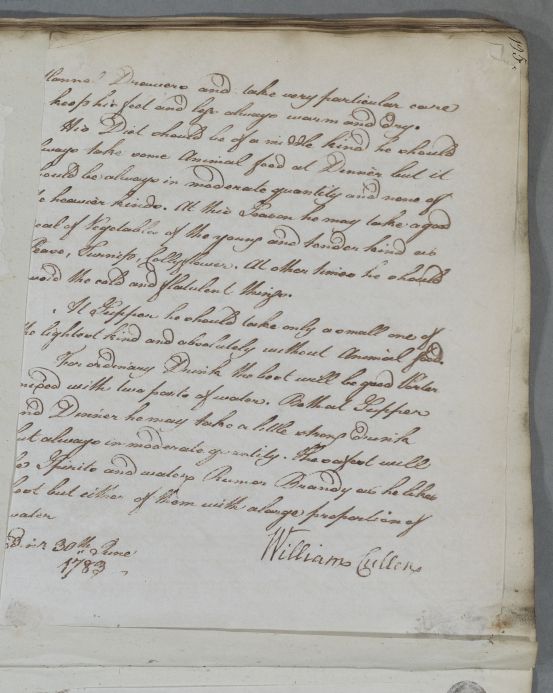 195
flannel Drawers and take very particular care
keep his feet and legs always warm and dry.
His Diet should be of a middle kind he should
always take some Animal food at Dinner but it
should be always in moderate quantity and none of
the heavier kinds. At this Season he may take a good
deal of Vegetable of the young and tender kind as
Pease, Turnip, Collyflower. At other times he should
avoid the cold and flatulent things.
At Supper he should take only a small one of
the lightest kind and absolutely without Animal food.
For ordinary Drink the best will be good Porter
mixed with two parts of water. Both at Supper
and Dinner he may take a little strong Drink
but always in moderate quantity. The safest will
be Spirits and water, Rum or Brandy as he likes
best but either of them with a large proportion of
water
William Cullen
Edinr 30th June
1783